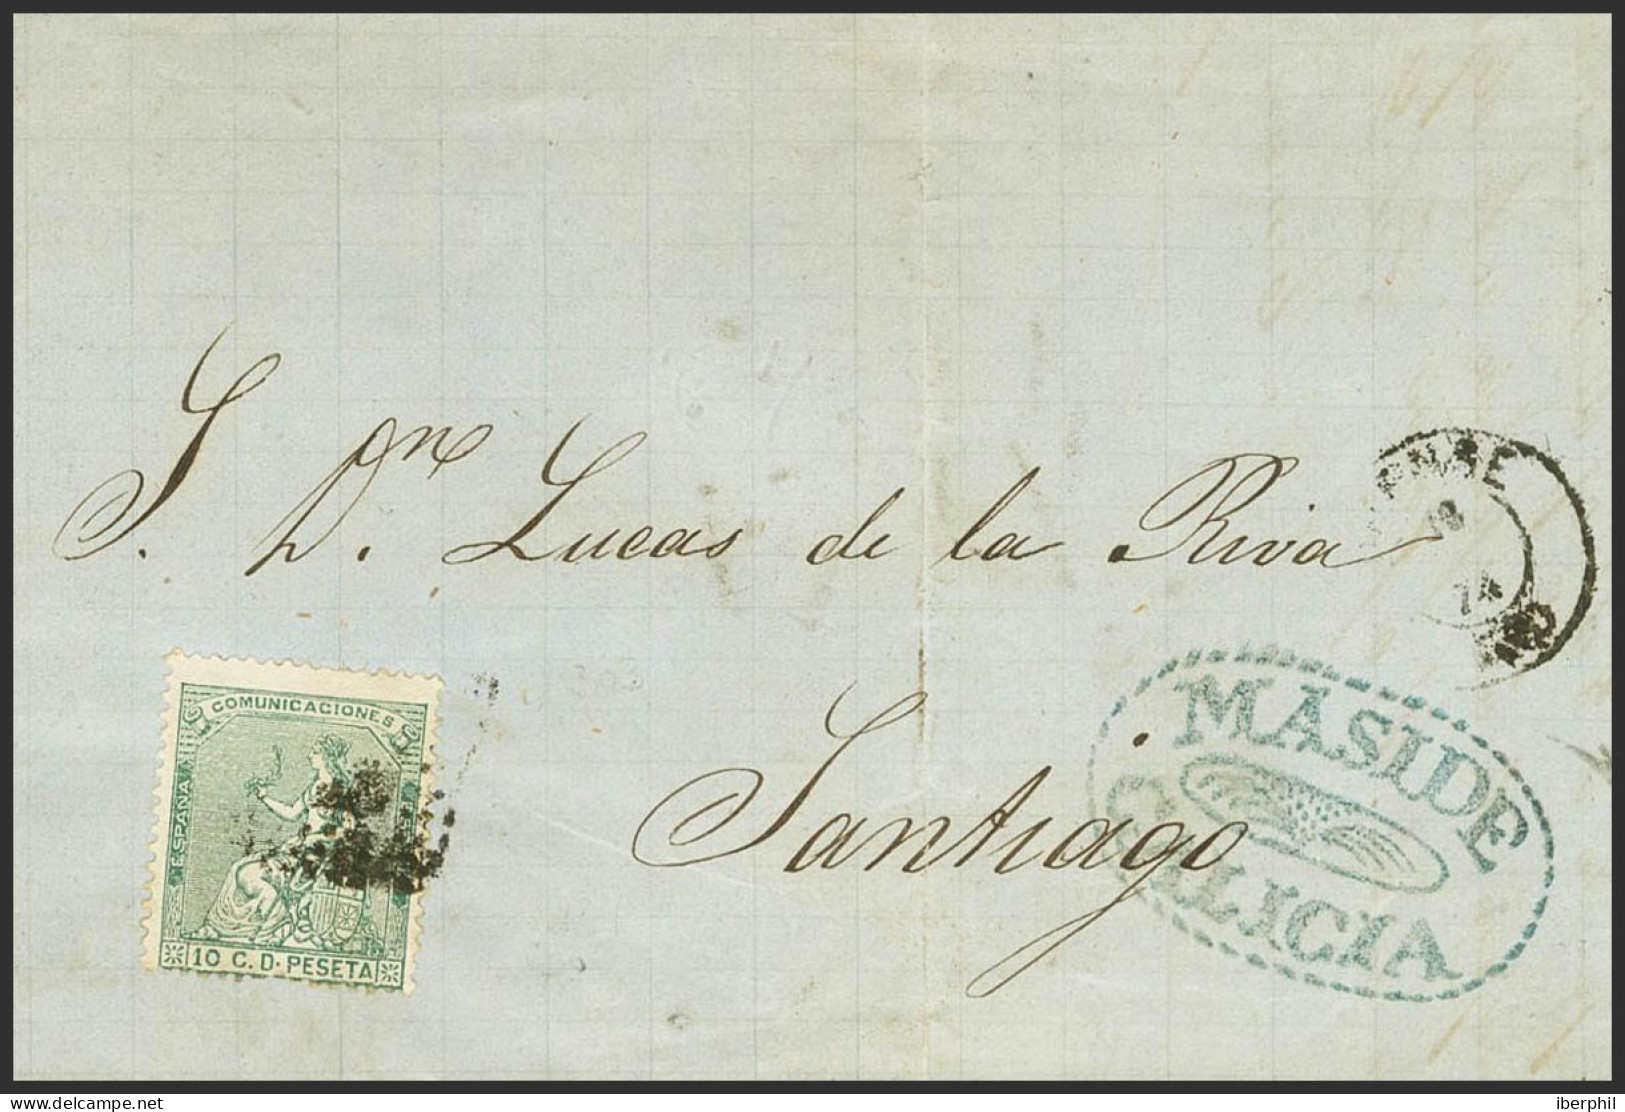 S. Dn. Lucas de la Riva
Santiago
COMUNICACIONES
ESPAÑA
10 C. D. PESETA
74
MASIDE
GALICIA
www.delcampe.net
iberphil